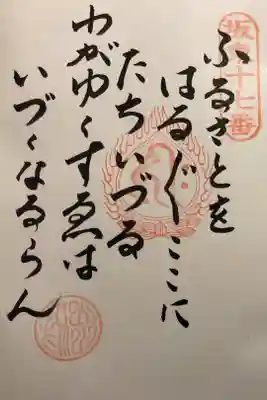 坂東十七番
ふるさとを
はるばるここに
たちいづる
わがゆくすゑは
いづくなるらん